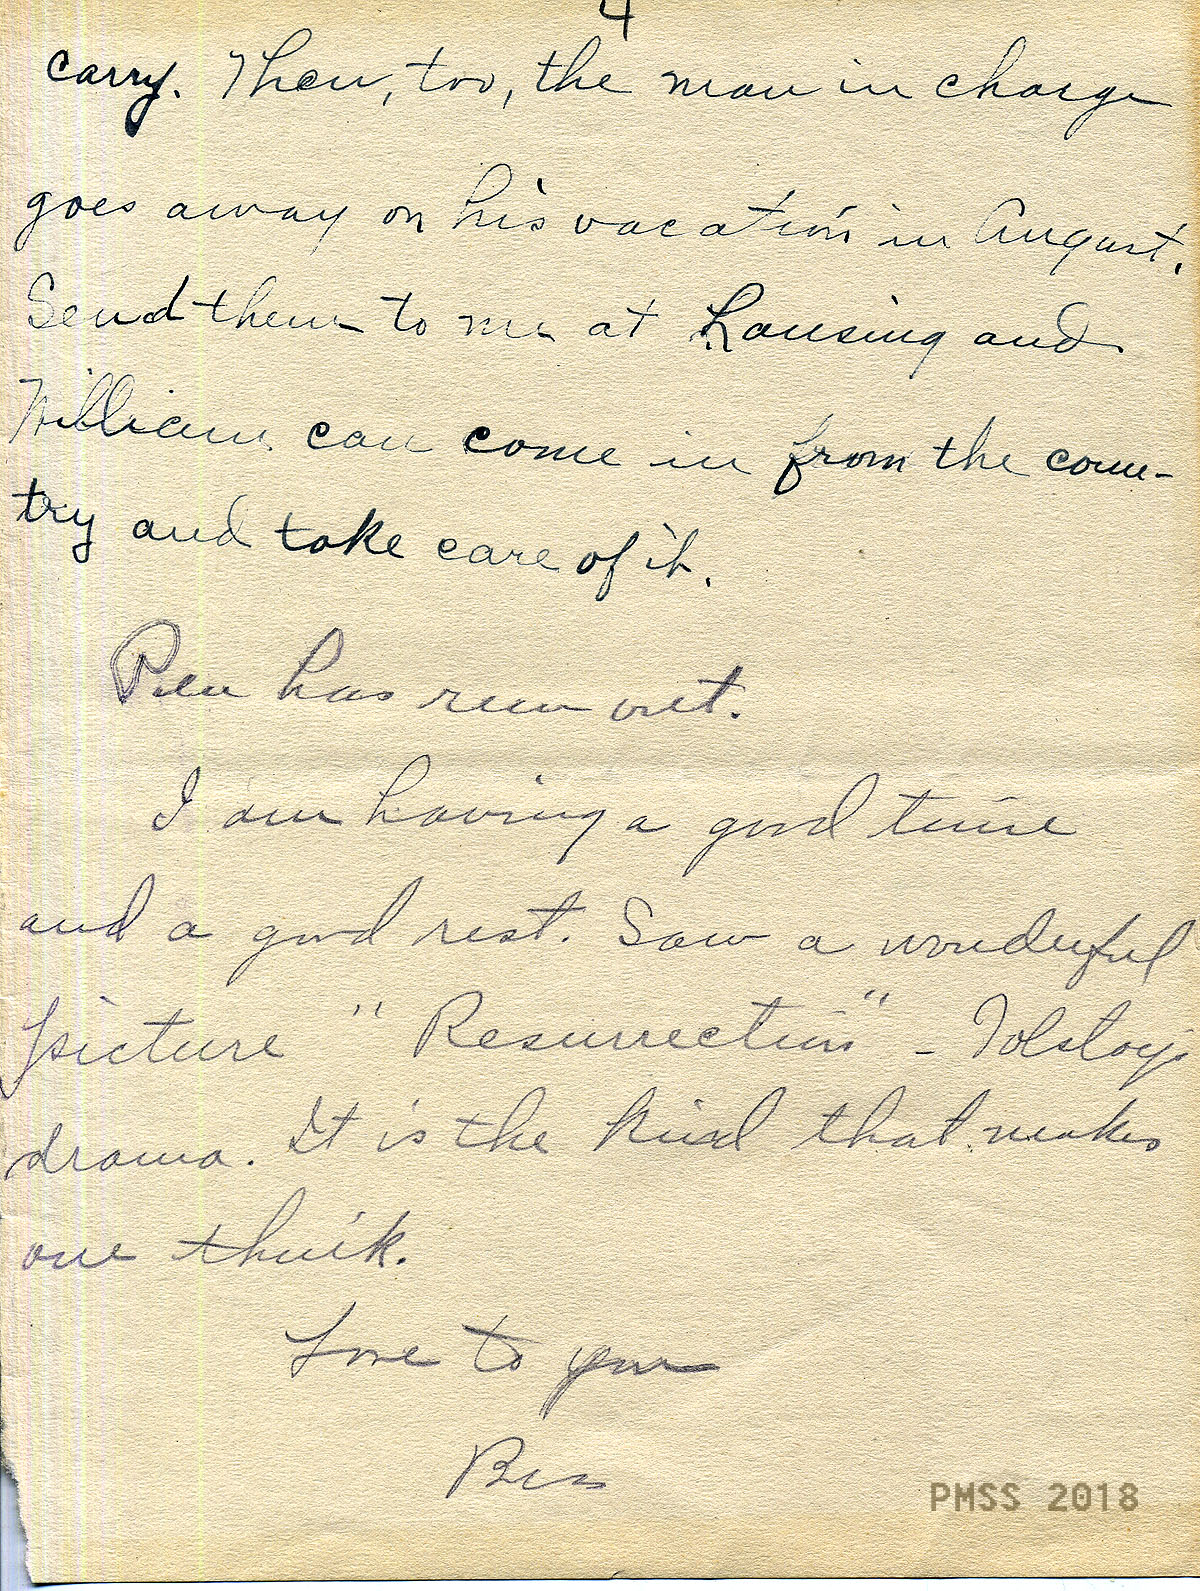 4
carry. Then, too, the man in charge
goes away on his vacation in August.
Send them to me at Lansing and
William can come in from the coun-
try and take care of it.
Pen has run out.
I am having a good time
and a good rest. Saw a wonderful
picture "Resurrection" - Tolstoys
drama. It is the kind that makes
one think.
Love to you
Bess
PMSS 2018